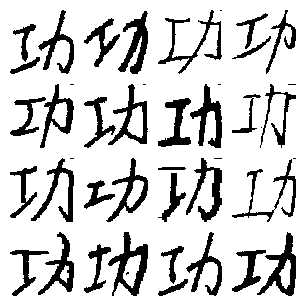 功功功功
功功功功
功功功功
功功功功